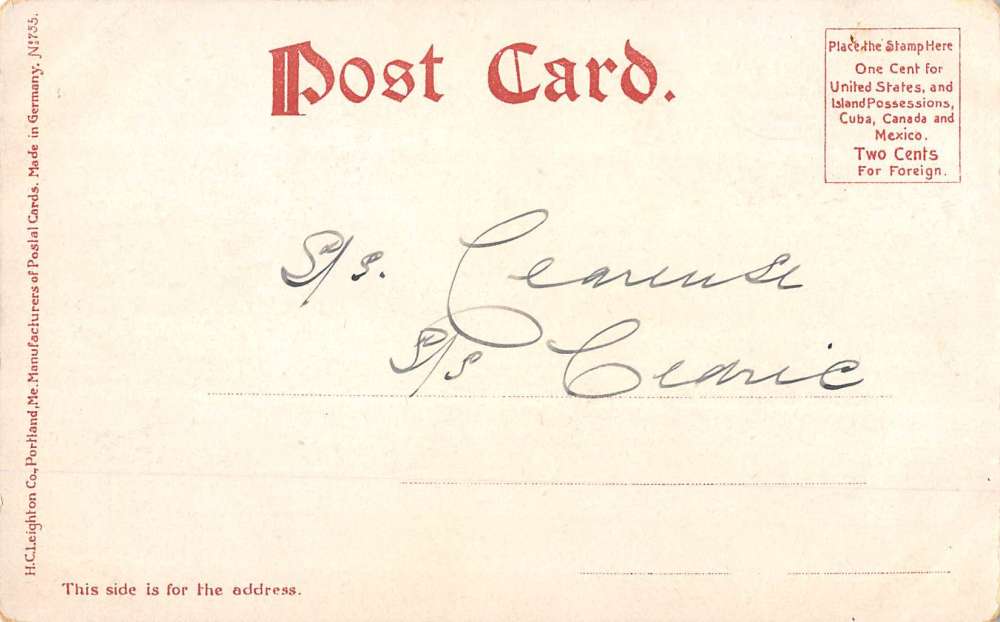 Post Card.
Place the Stamp Here
One Cent for
United States, and
Island Possessions,
Cuba, Canada and
Mexico.
Two Cents
For Foreign.
S/s.
S/s Cedric
This side is for the address.
H.C. Leighton Co., Portland, Me. Manufacturers of Postal Cards. Made in Germany. No 735.